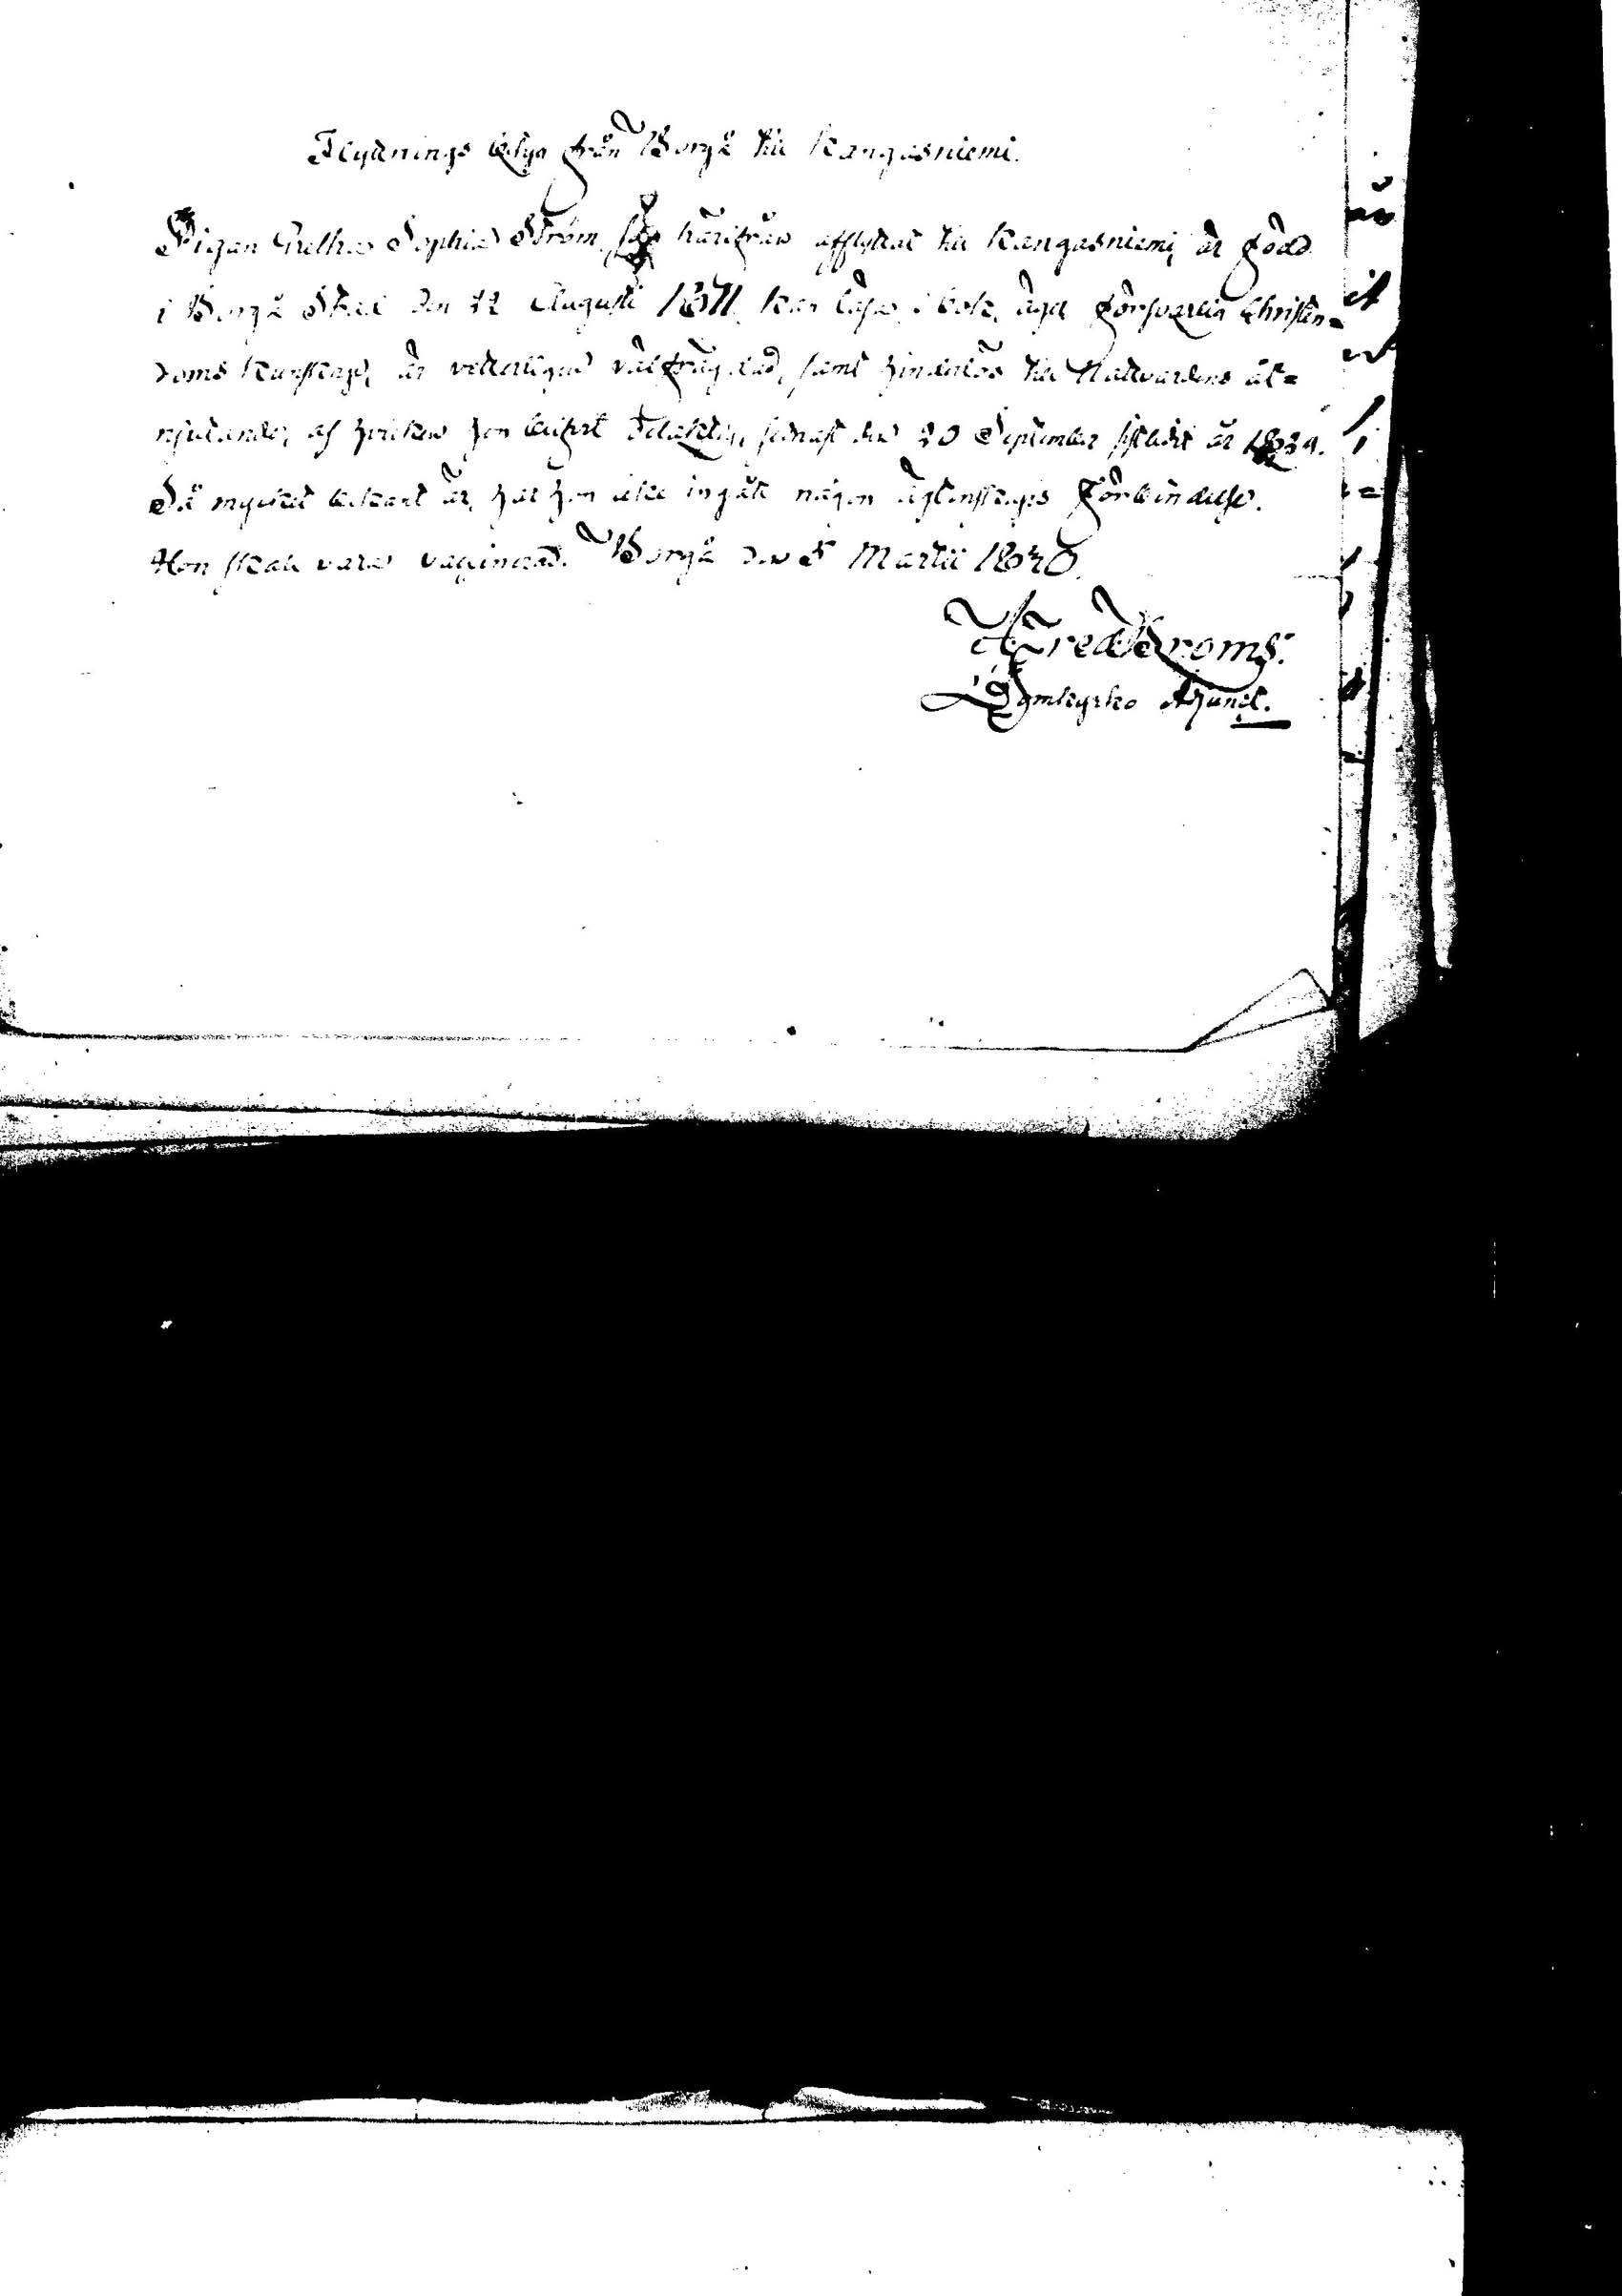 Flyttnings betyg från Borgå till Kangasniemi.
Pigan Gretha Sophia Ström, som härifrån afflyttat till Kangasniemi, är född
i Borgå Stad den 12 Augusti 1811, kan läsa i bok, äger försvarlig Christen=
doms kunskap, är vetterligen välfrägdad, samt hinderlös till Nattvardens åt=
njutande, af hvilken hon blifvit delaktig sednast den 20 September sistledit år 1829.
Så mycket bekant är, har hon icke ingått någon ägtenskaps förbindelse.
Hon skall vara vaccinerad. Borgå den 5 Martii 1830.
Domkyrko Adjunct.